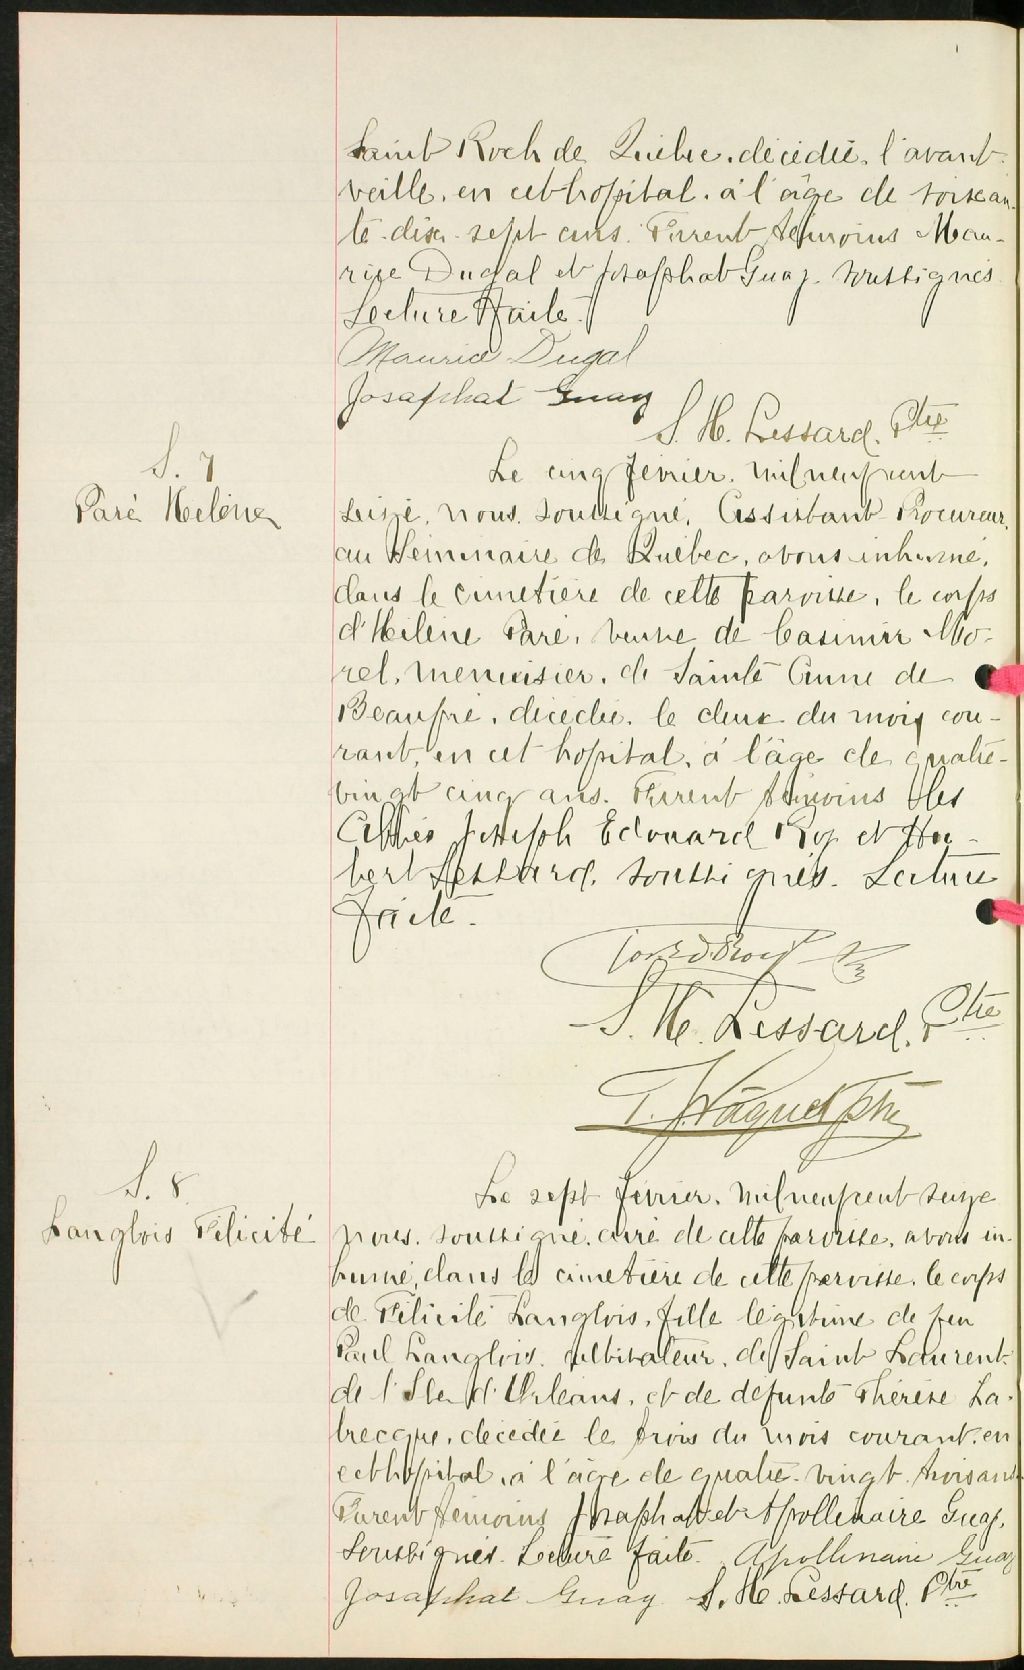 Saint Roch de Québec, décédée, l'avant-
veille, en cet hopital, à l'âge de soixan-
te-dix-sept ans. Furent témoins Mau-
rice Dugal et Josaphat Guay, soussignés
Lecture faite.
Maurice Dugal
Josaphat Guay
S. H. Lessard. Ptre
S. 7
Paré Hélène
Le cinq février, mil neuf cent
seize, nous, soussigné, Assistant Procureur,
au Séminaire de Québec, avons inhumé,
dans le cimetière de cette paroisse, le corps
d'Hélène Paré, veuve de Casimir Mo-
rel, menuisier, de Sainte Anne de
Beaupré, décédée, le deux du mois cou-
rant, en cet hopital, à l'âge de quatre-
vingt cinq ans. Furent témoins les
Abbés Joseph Edouard Roy et Hu-
bert Lessard, soussignés. Lecture
faite.
Jos Ed Roy Ptre
S. H. Lessard. Ptre
S. 8
Langlois Félicité
Le sept février, mil neuf cent seize
nous, soussigné, curé de cette paroisse, avons in-
humé, dans le cimetière de cette paroisse, le corps
de Félicité Langlois, fille légitime de feu
Paul Langlois, cultivateur, de Saint Laurent
de l'Ile d'Orléans, et de défunte Thérèse La-
brecque, décédée le trois du mois courant, en
cet hopital, à l'âge de quatre-vingt-trois ans
Furent témoins Josaphat et Apollinaire Guay,
soussignés. Lecture faite. Apollinaire Guay
Josaphat Guay S. H. Lessard. Ptre